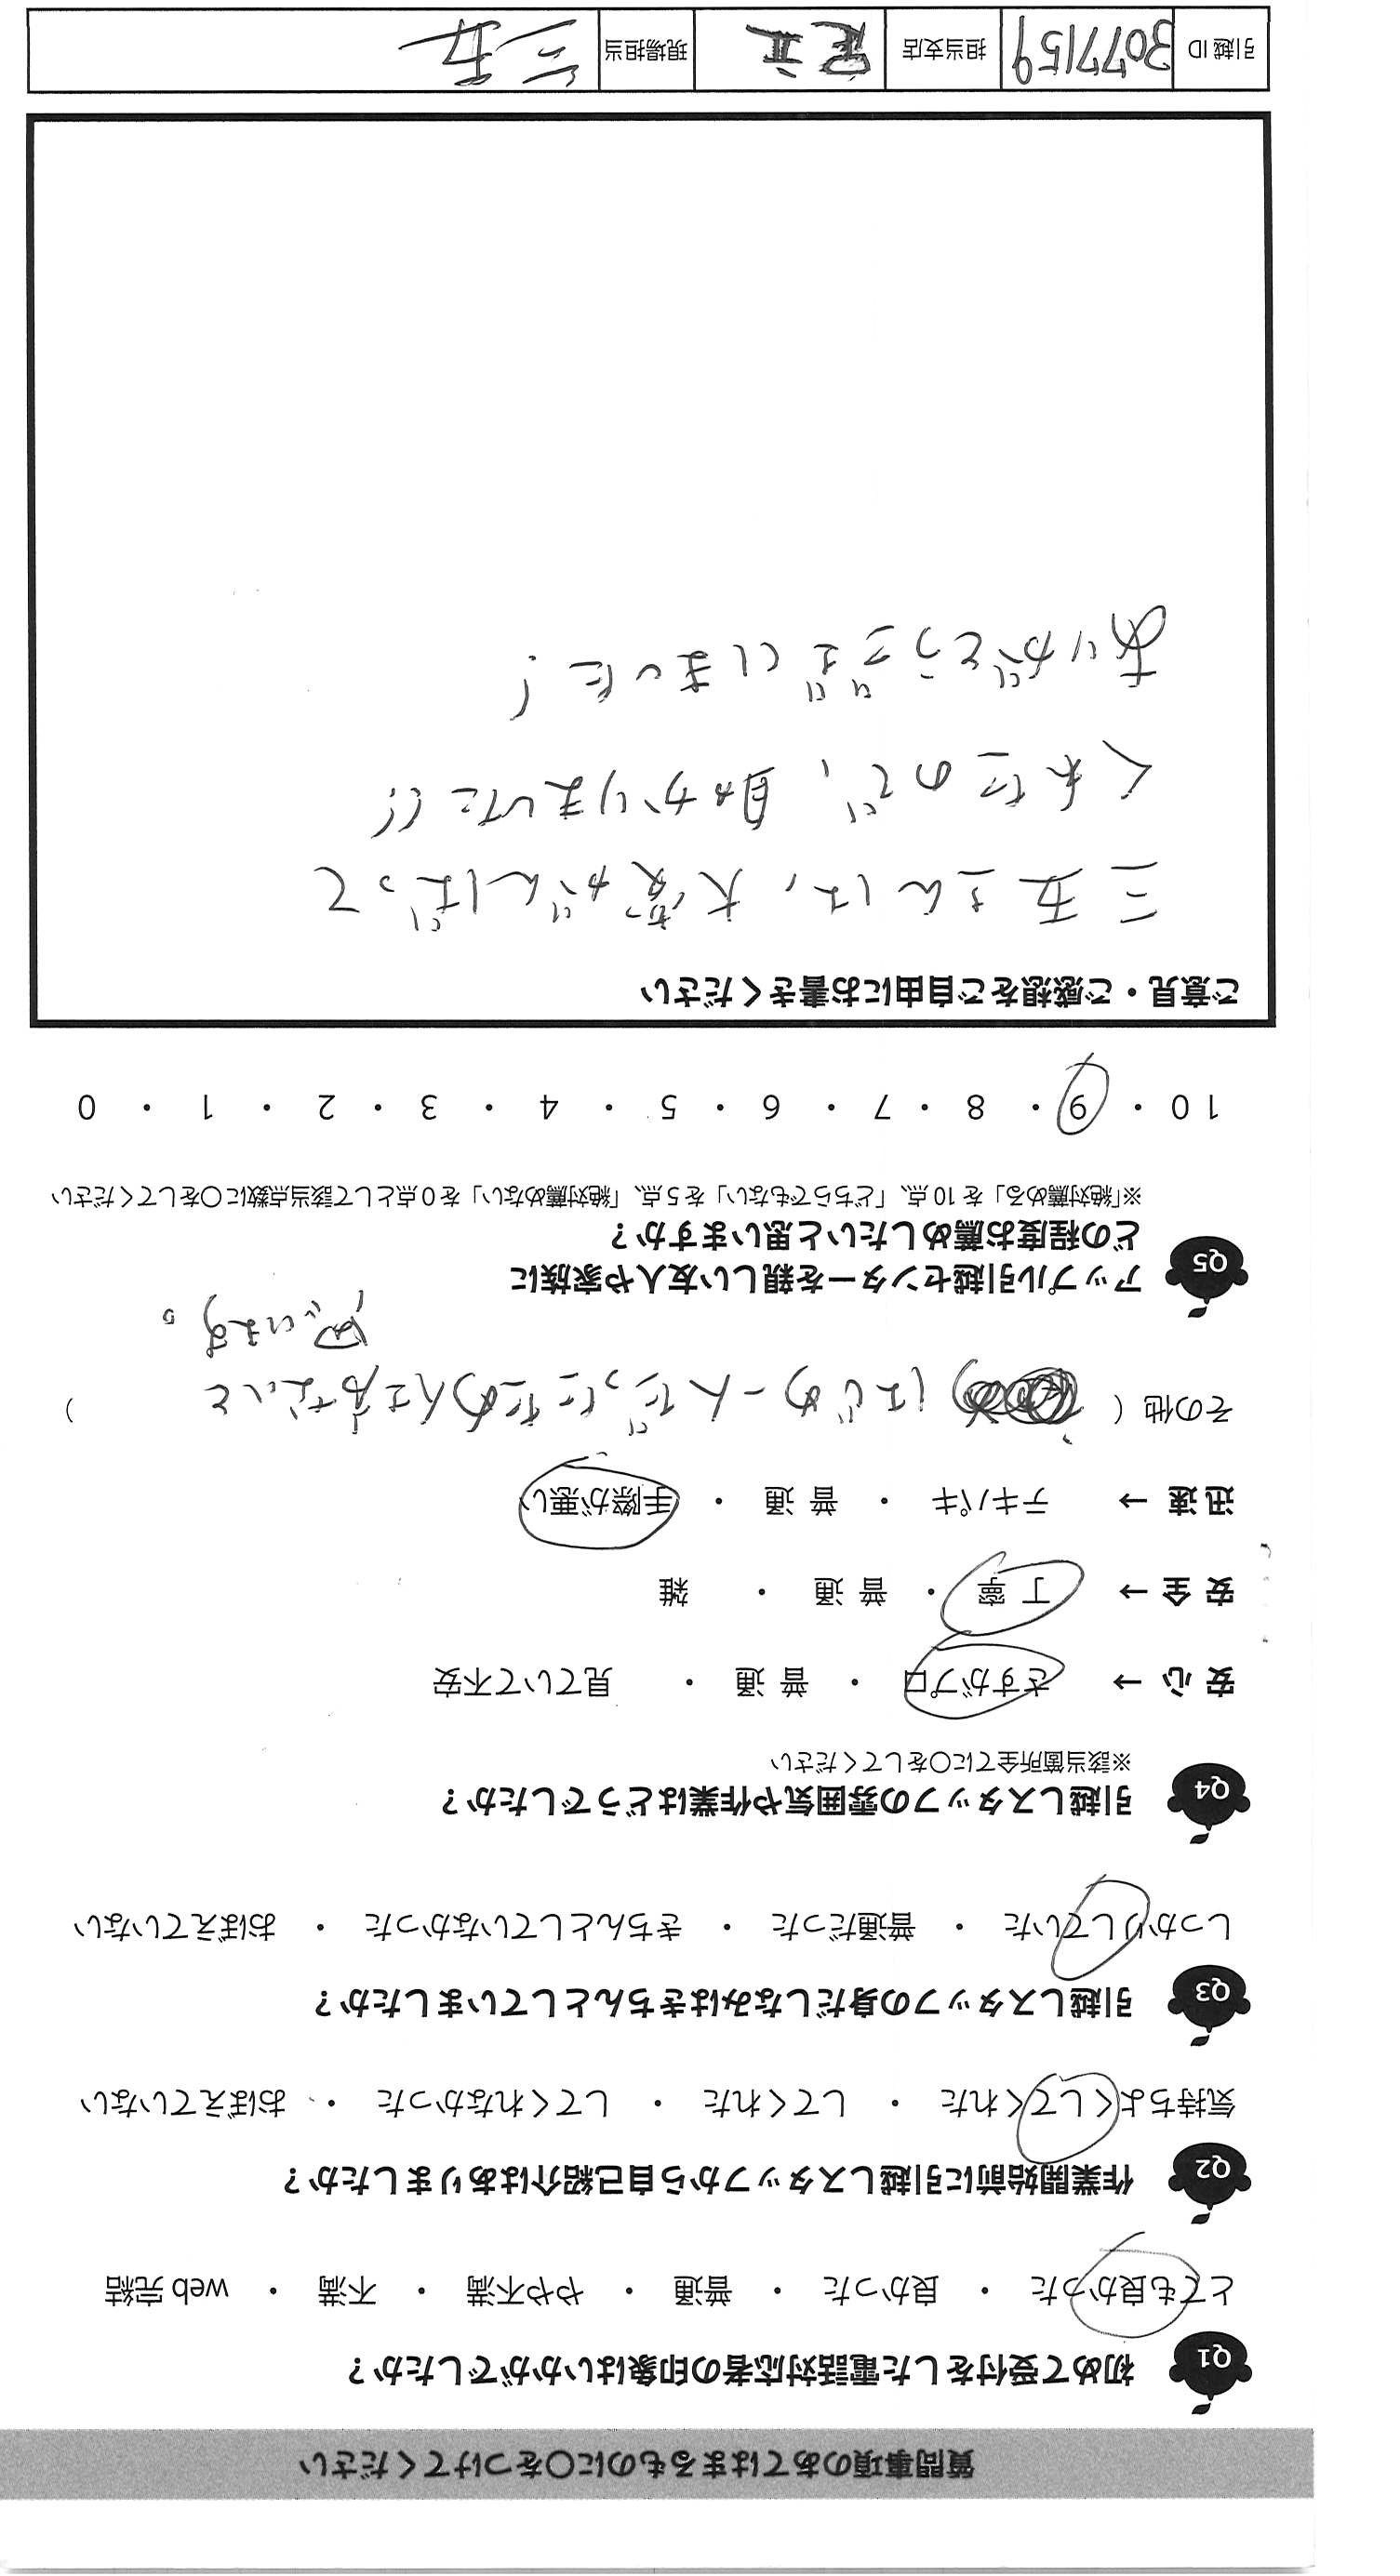 質問事項のあてはまるものに〇をつけてください
Q1 初めて受付をした電話対応者の印象はいかがでしたか？
とても良かった ・ 良かった ・ 普通 ・ やや不満 ・ 不満 ・ web 完結
Q2 作業開始前に引越しスタッフから自己紹介はありましたか？
気持ちよくしてくれた ・ してくれた ・ してくれなかった ・ おぼえていない
Q3 引越しスタッフの身だしなみはきちんとしていましたか？
しっかりしていた ・ 普通だった ・ きちんとしていなかった ・ おぼえていない
Q4 引越しスタッフの雰囲気や作業はどうでしたか？
※該当箇所全てに〇をしてください
安 心 → さすがプロ ・ 普 通 ・ 見ていて不安
安 全 → 丁 寧 ・ 普 通 ・ 雑
迅 速 → テキパキ ・ 普 通 ・ 手際が悪い
その他 ( はじめ一人だったため仕方ないと )
思います。
Q5 アップル引越センターを親しい友人や家族に
どの程度お薦めしたいと思いますか？
※「絶対薦める」を 10 点、「どちらでもない」を 5 点、「絶対薦めない」を 0 点として該当点数に〇をしてください
10 ・ 9 ・ 8 ・ 7 ・ 6 ・ 5 ・ 4 ・ 3 ・ 2 ・ 1 ・ 0
ご意見・ご感想をご自由にお書きください
三五さんは、大変がんばって
くれたので、助かりました!!
ありがとうございました!
引越 ID 3077159 担当支店 足立 現場担当 三五